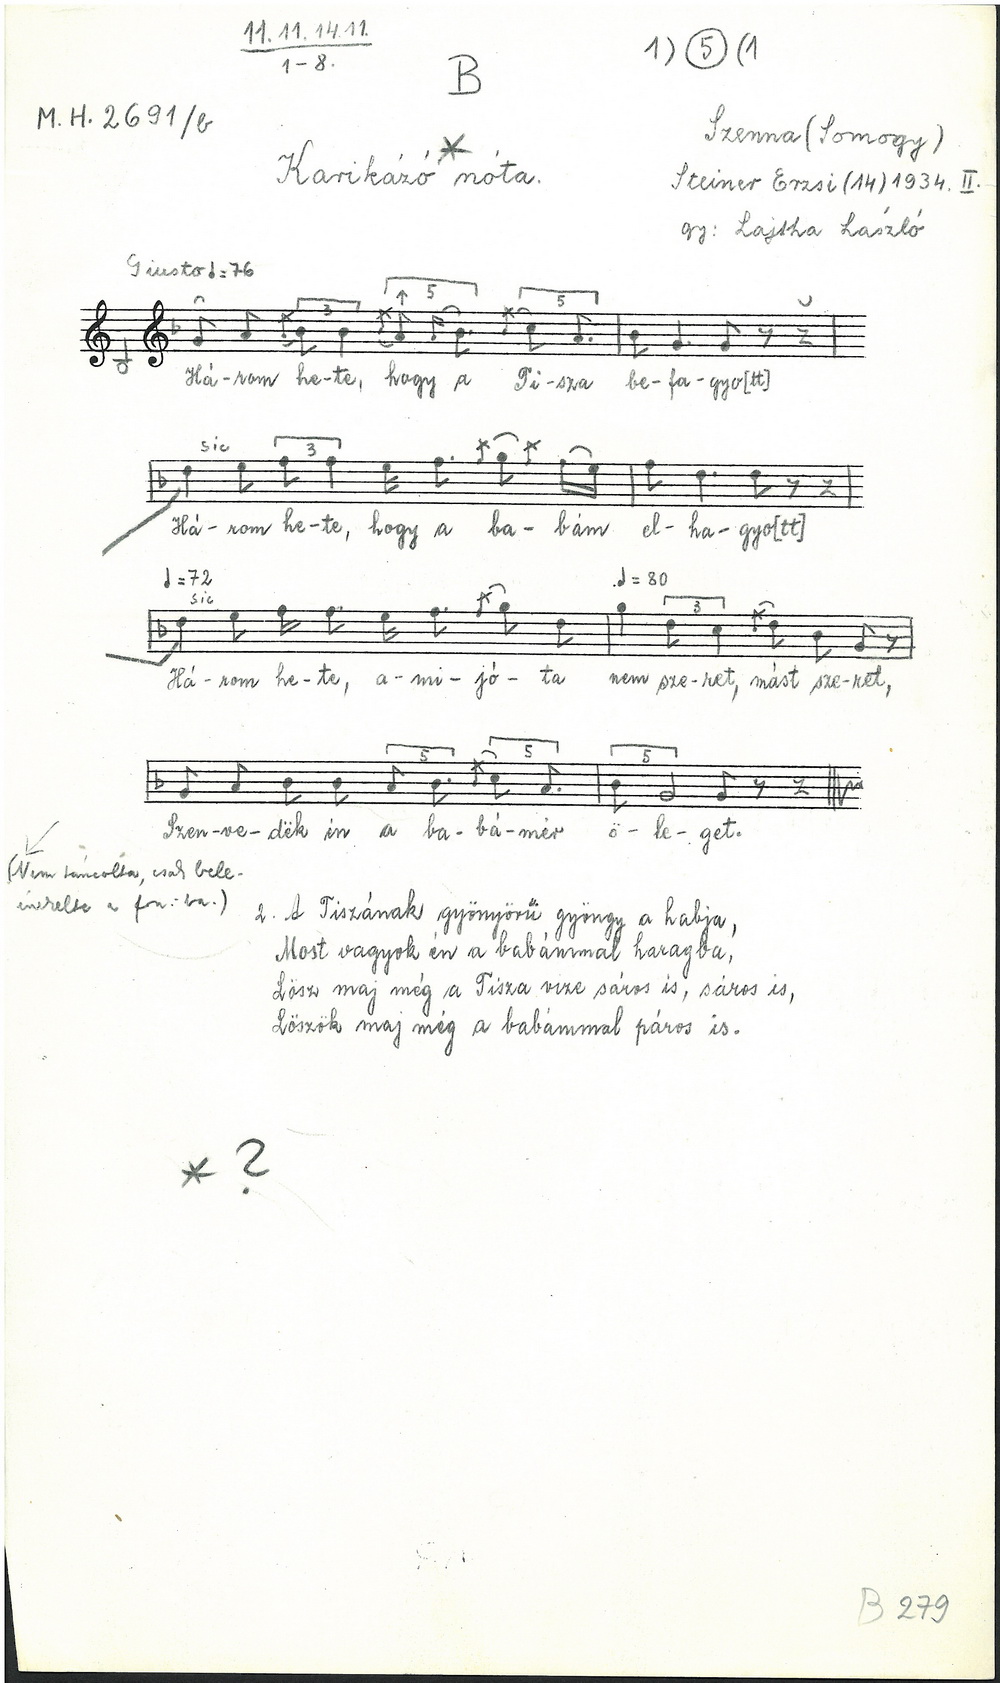 11. 11. 14. 11.
1-8.
B
1) 5 (1
M. H. 2691/b
Szenna (Somogy)
Karikázó nóta.*
Steiner Erzsi (14) 1934. II.
gy: Lajtha László
Giusto ♩=76
3 5 5
Há-rom he-te, hogy a Ti-sza be-fa-gyo[tt]
sic 3
Há-rom he-te, hogy a ba-bám el-ha-gyo[tt]
♩=72 ♩=80
sic 3
Há-rom he-te, a-mi-jó-ta nem sze-ret, mást sze-ret,
5 5 5
Szen-ve-dëk én a ba-bá-mér ö-le-get.
(Nem táncolta, csak bele-
)
2. A Tiszának gyönyörű gyöngy a habja,
Most vagyok én a babámmal haragba,
Lösz maj még a Tisza vize sáros is, sáros is,
Löszök maj még a babámmal páros is.
* ?
B 279